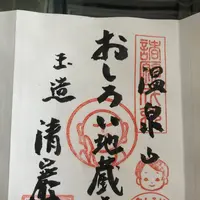 温泉山
おしろい地蔵
玉造
清巌